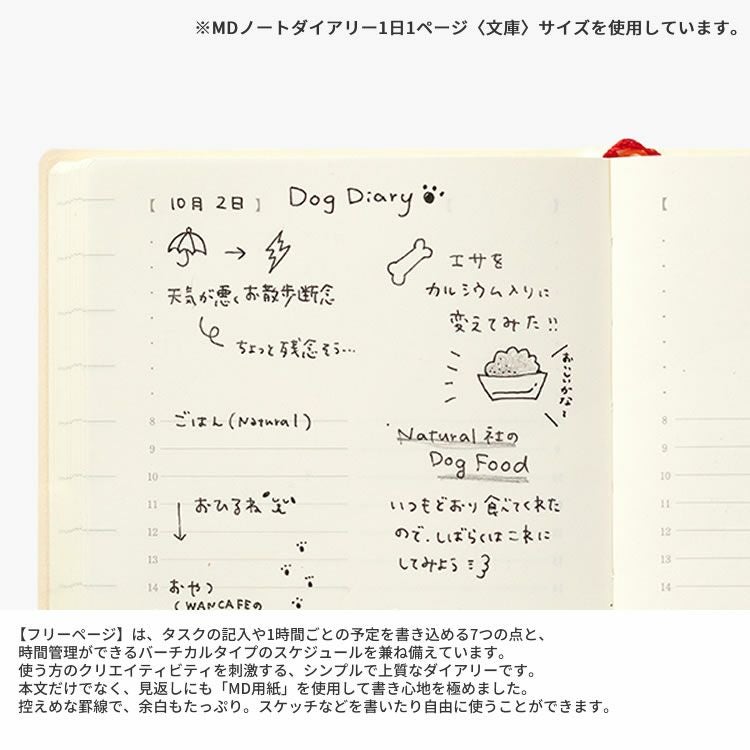 ※MDノートダイアリー1日1ページ〈文庫〉サイズを使用しています。
[ 10月 2日 ] Dog Diary
天気が悪くお散歩断念
ちょっと残念そう…
エサを
カルシウム入りに
変えてみた!!
おいしいかな〜
8 ごはん(Natural)
9
10
11 おひるね
12
13
14 おやつ
(WANCAFEの
Natural社の
Dog Food
いつもどおり食べてくれた
ので、しばらくはこれに
してみよう
8
9
10
11
12
13
14
【フリーページ】は、タスクの記入や1時間ごとの予定を書き込める7つの点と、
時間管理ができるバーチカルタイプのスケジュールを兼ね備えています。
使う方のクリエイティビティを刺激する、シンプルで上質なダイアリーです。
本文だけでなく、見返しにも「MD用紙」を使用して書き心地を極めました。
控えめな罫線で、余白もたっぷり。スケッチなどを書いたり自由に使うことができます。